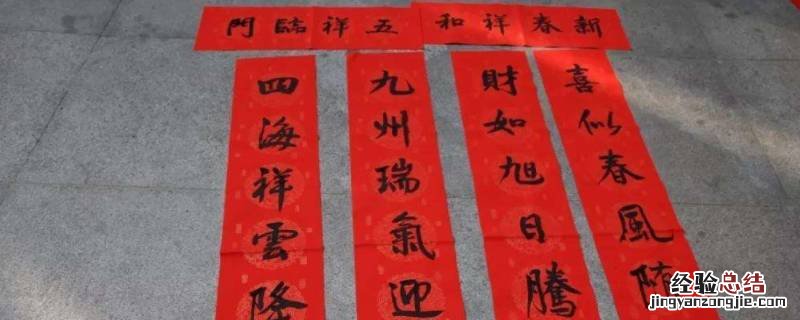 新春祥和
五祥臨門
喜似春風
財如旭日騰
九州瑞氣迎
四海祥雲降
经验总结
jingyanzongjie.com